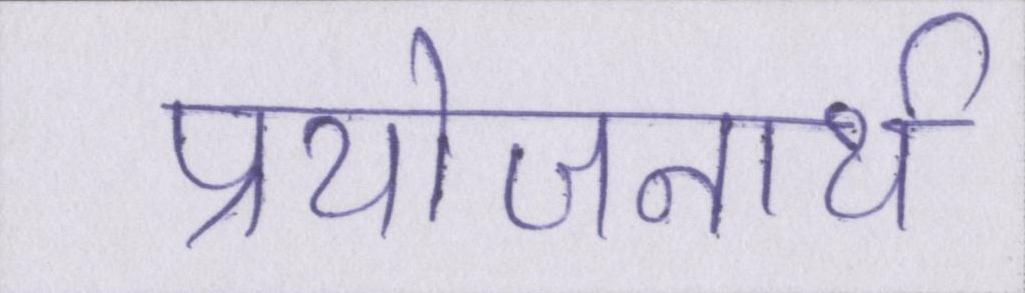 प्रयोजनार्थ